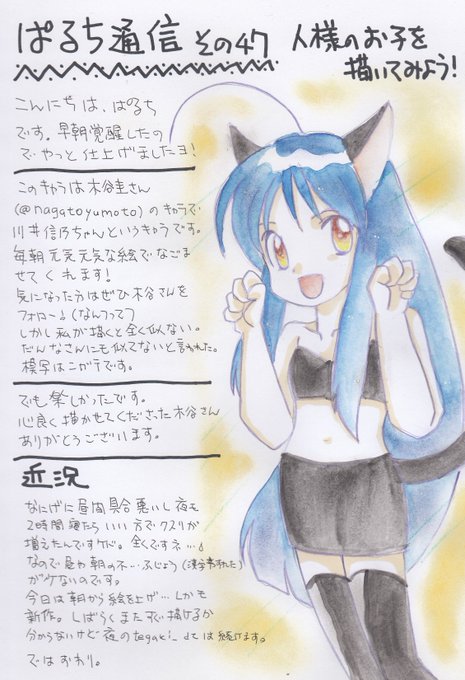 ぱるち通信 その47
人様のお子を
描いてみよう!
こんにちは、ぱるち
です。早朝覚醒したの
でやっと仕上げましたヨ!
このキャラは木谷圭さん
(@nagatoyumoto)のキャラで
川井信乃ちゃんというキャラです。
毎朝元気元気な絵でなごま
せてくれます!
気になった方はぜひ木谷さんを
フォロー♪(なんつって)
しかし私が描くと全く似ない。
だんなさんにも似てないと言われた。
模写はニガテです。
でも楽しかったです。
心良く描かせてくださった木谷さん
ありがとうございます。
近況
なにげに昼間具合悪いし夜も
2時間寝たらいい方でクスリが
増えたんですケド。全くですネ…
なので昼や朝のネ…ふじょう(漢字忘れた)
がケないのです。
今日は朝から絵を上げ…しかも
新作。しばらくまたすぐ描けるか
分からないけど夜のtegakiには続けます。
ではおわり。